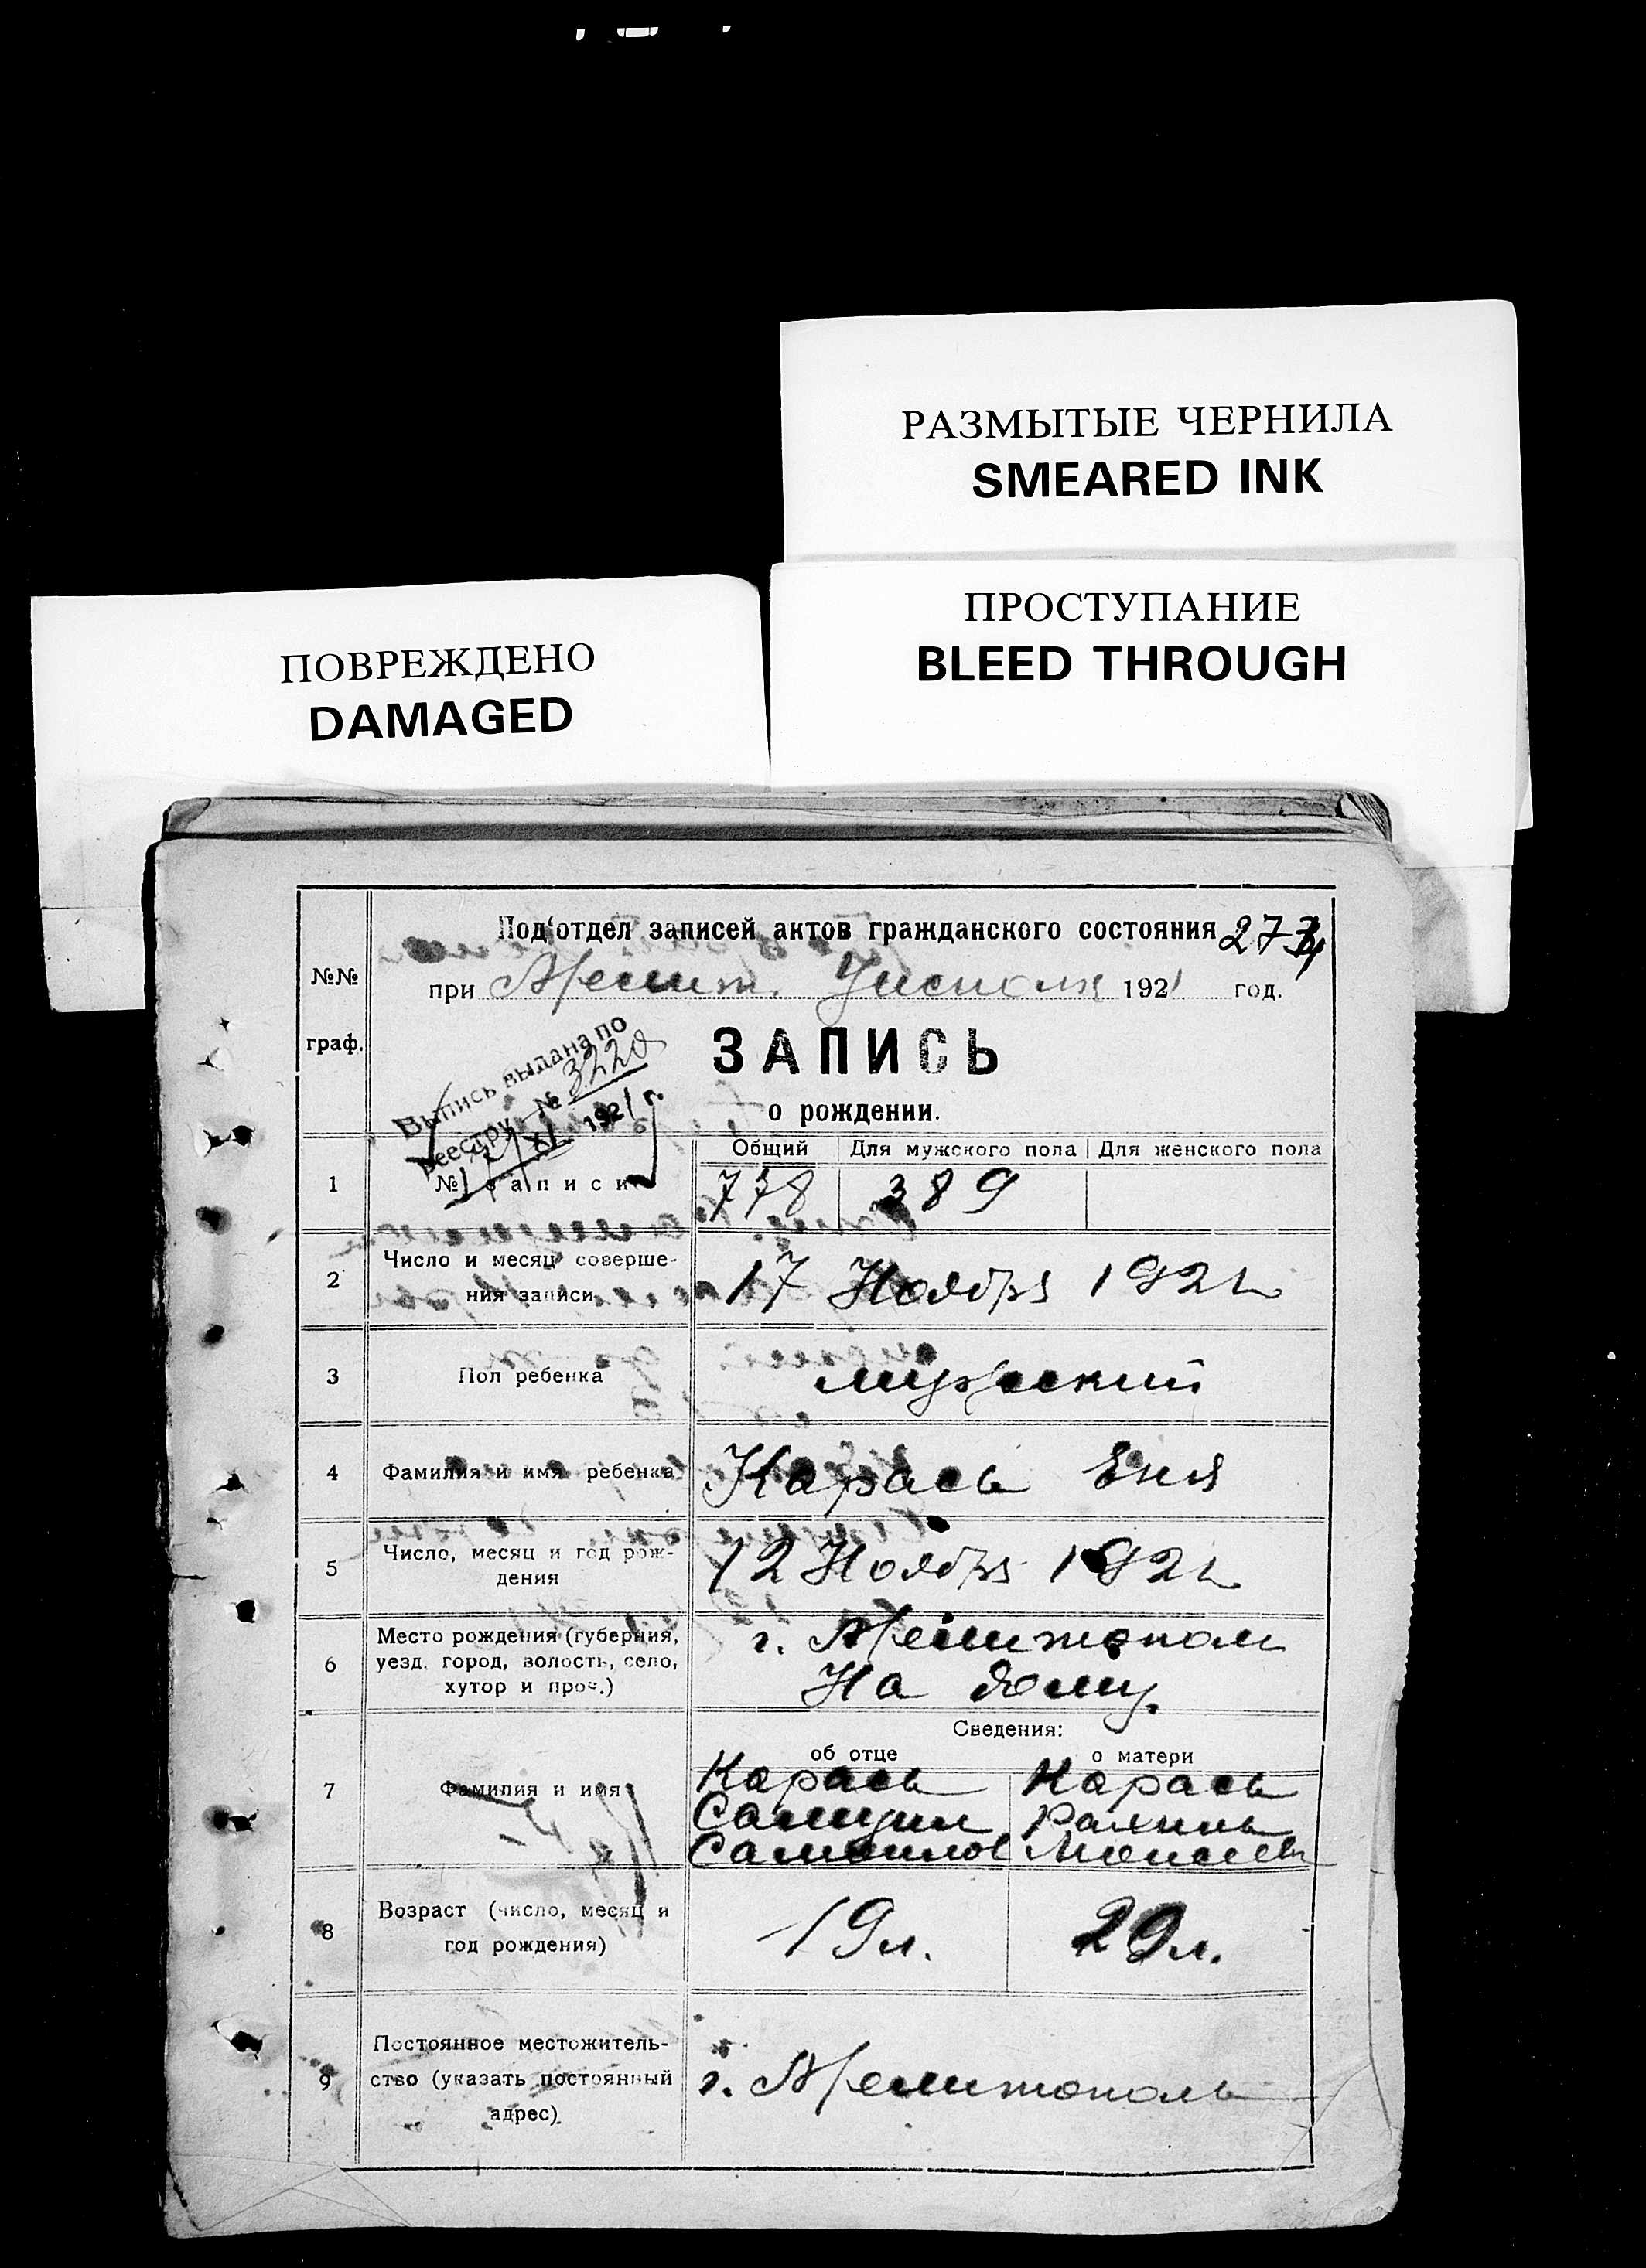 РАЗМЫТЫЕ ЧЕРНИЛА
SMEARED INK
ПРОСТУПАНИЕ
BLEED THROUGH
ПОВРЕЖДЕНО
DAMAGED
Под'отдел записей актов гражданского состояния
№№ граф.
при Мелит. 1921 год.
Выпись выдана по
реестру № 3220
1921 г.
ЗАПИСЬ
о рождении.
Общий Для мужского пола Для женского пола
1 № записи 738 389
2 Число и месяц соверше-
ния записи 17 Ноября 1921
3 Пол ребенка мужской
4 Фамилия и имя ребенка Карась Еня
5 Число, месяц и год рож-
дения 12 Ноября 1921
6 Место рождения (губерния,
уезд, город, волость, село,
хутор и проч.)
г. Мелитополь
На дому
Сведения:
об отце о матери
7 Фамилия и имя
Карась Карась
Самуил
Самойлов Моисеев
8 Возраст (число, месяц и
год рождения) 19 л. 29 л.
9 Постоянное местожитель-
ство (указать постоянный
адрес)
г. Мелитополь